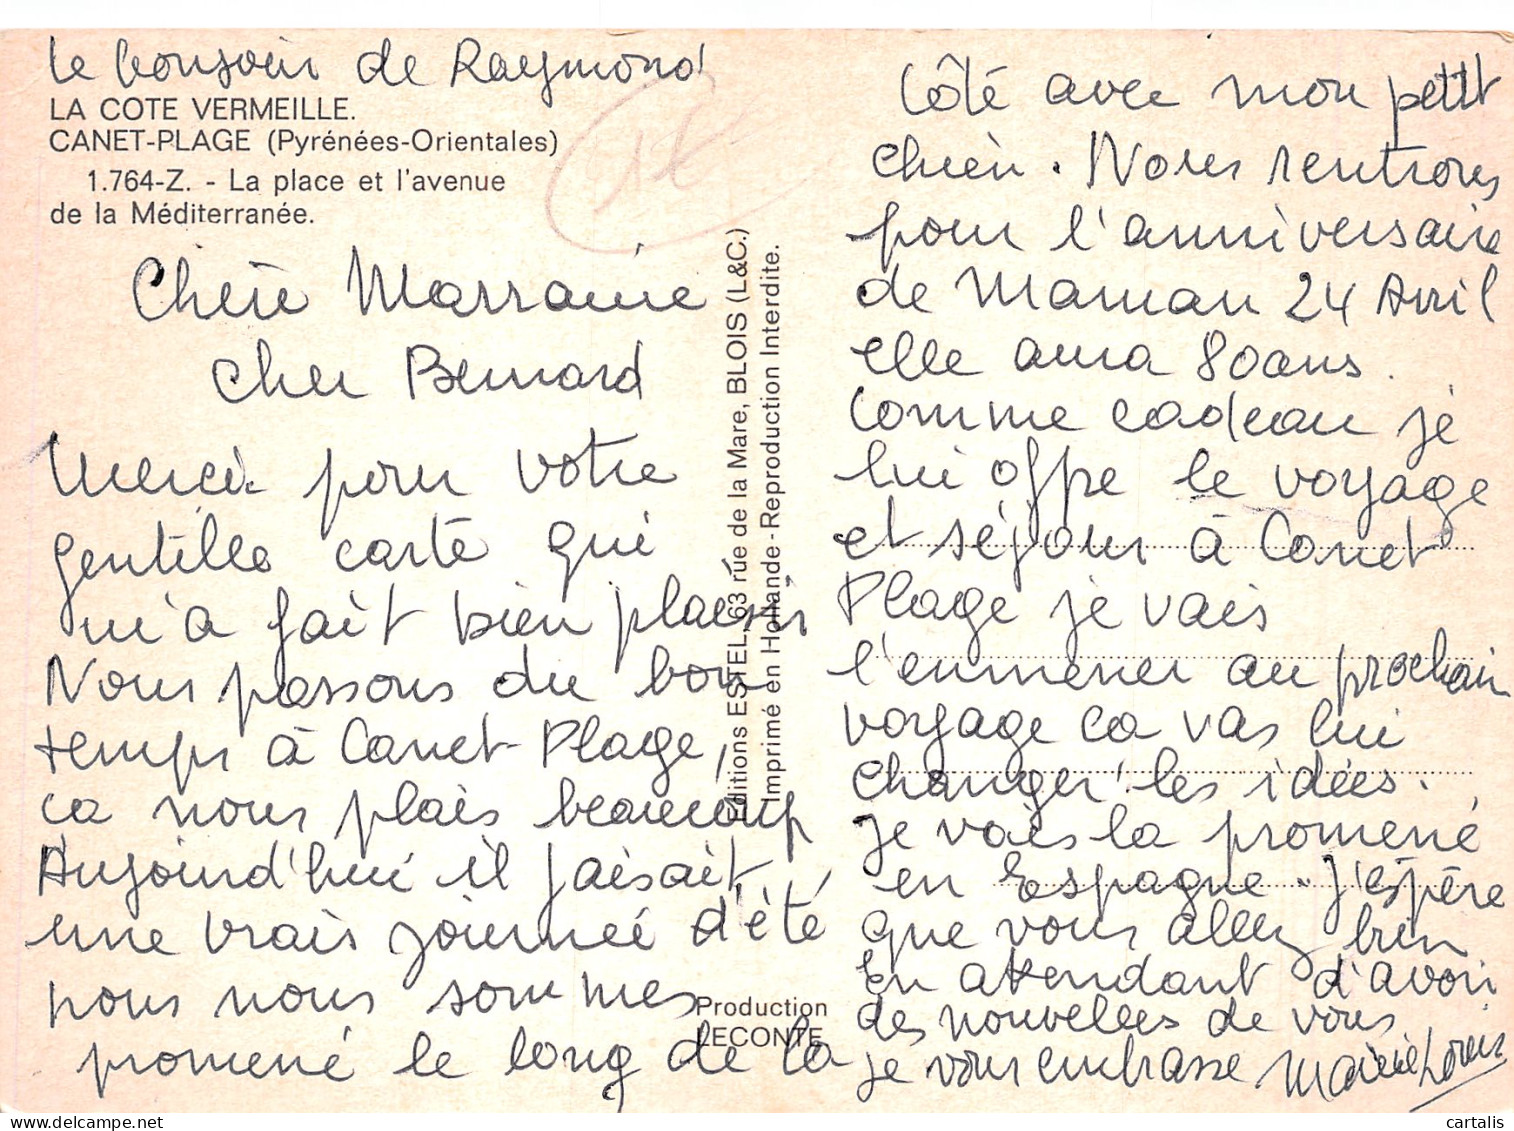 le bonsoir de Raymond
LA COTE VERMEILLE.
CANET-PLAGE (Pyrénées-Orientales)
1.764-Z. - La place et l'avenue
de la Méditerranée.
Chère Marraine
Cher Bernard
Merci pour votre
gentille carte qui
m'a fait bien plaisir
Nous passons du bon
temps à Canet-Plage,
ca nous plais beaucoup
Aujourd'hui il faisait
une vrais journeé d'été
nous nous sommes
promené le long de la
Editions ESTEL, 63 rue de la Mare, BLOIS (L&C.)
Imprimé en Hollande-Reproduction Interdite.
Production
LECONTE
Côté avec mon petit
chien. Nous rentrons
pour l'anniversaire
de Maman 24 Avril
elle aura 80 ans.
Comme cadeau je
lui offre le voyage
et séjour à Canet
Plage je vais
l'emmener au prochain
voyage ca vas lui
changer les idées.
je vais la promené
en Espagne. J'espère
que vous allez bien
En attendant d'avoir
des nouvelles de vous
je vous embrasse Marie Louise
cartalis